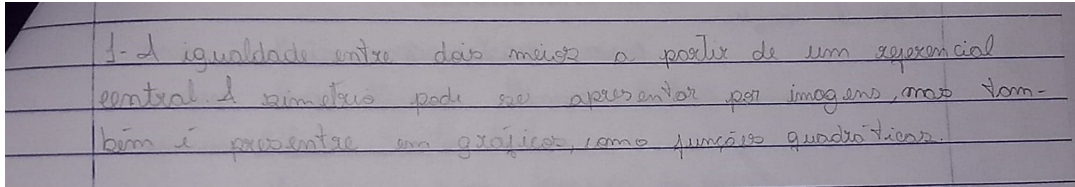 1- A igualdade entre dois meios a partir de um referencial
central. A simetria pode se apresentar por imagens, mas tam-
bém é presentre em gráficos, como funções quadráticas.